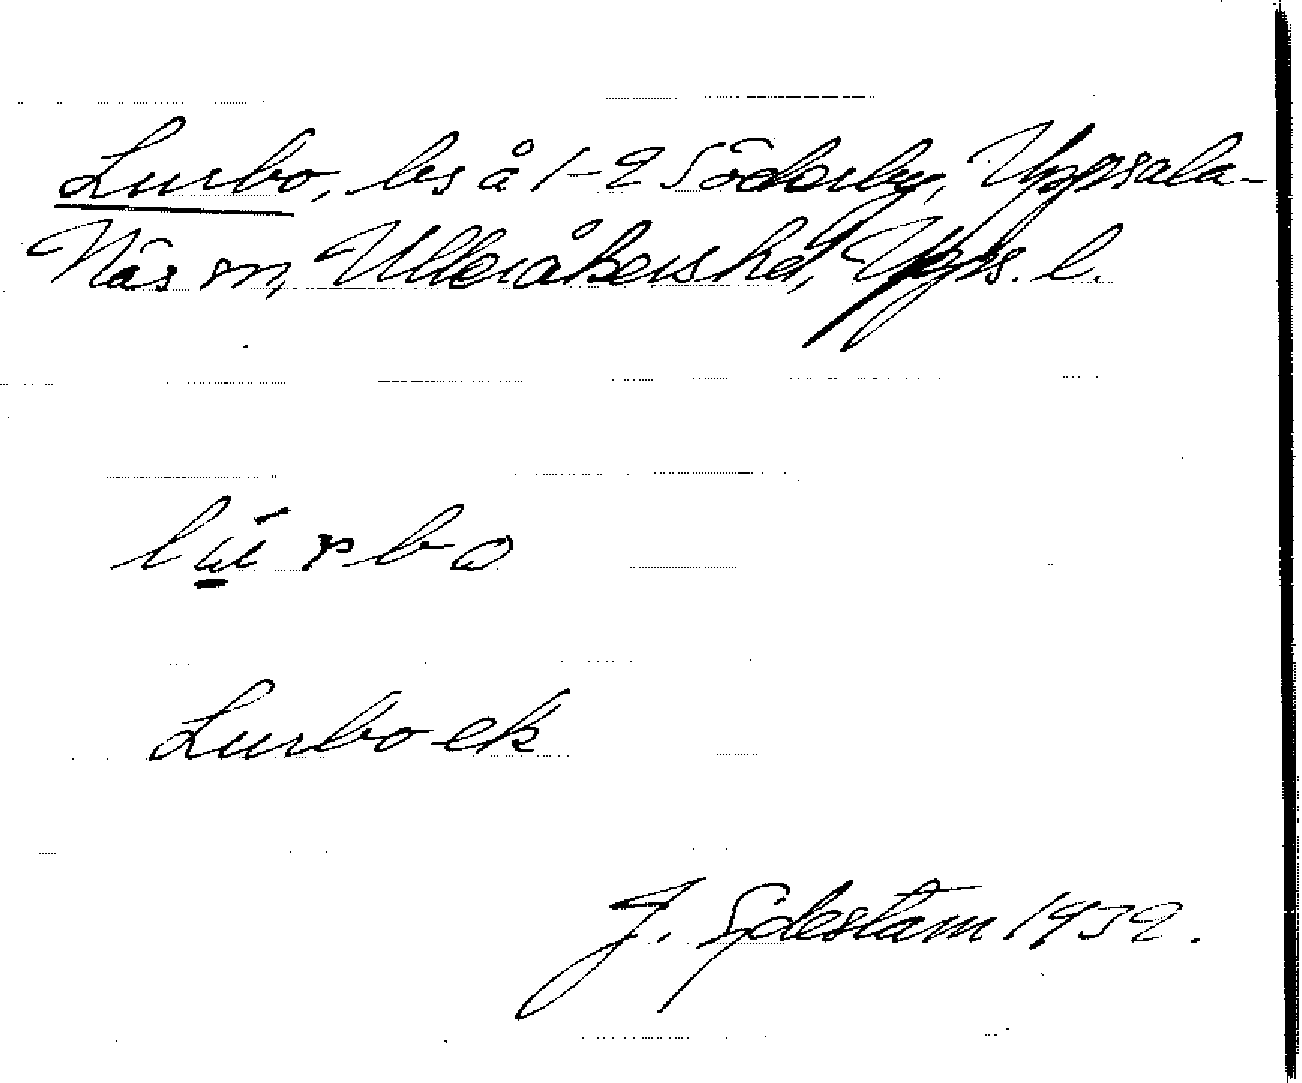 Lurbo, lhs å 1-2 Söderby, Uppsala-
Näs sn, Ulleråkers hd, Upps. l.
lúrbo
Lurbo ek
1932.